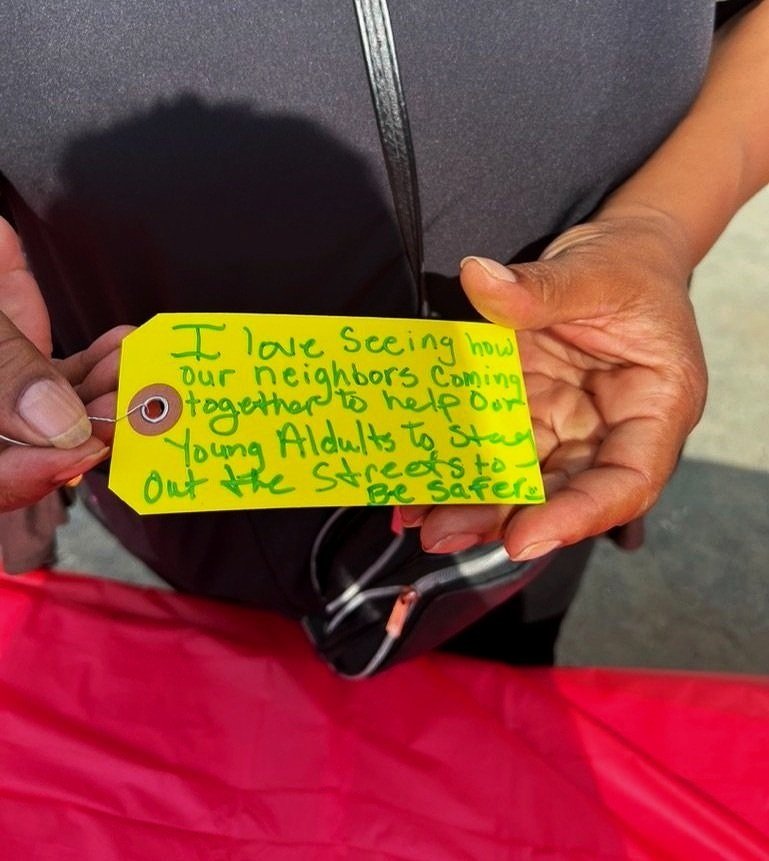 I love Seeing how
our neighbors Coming
together to help Our
Young Aldults To Stay
Out the Streets to
Be safer